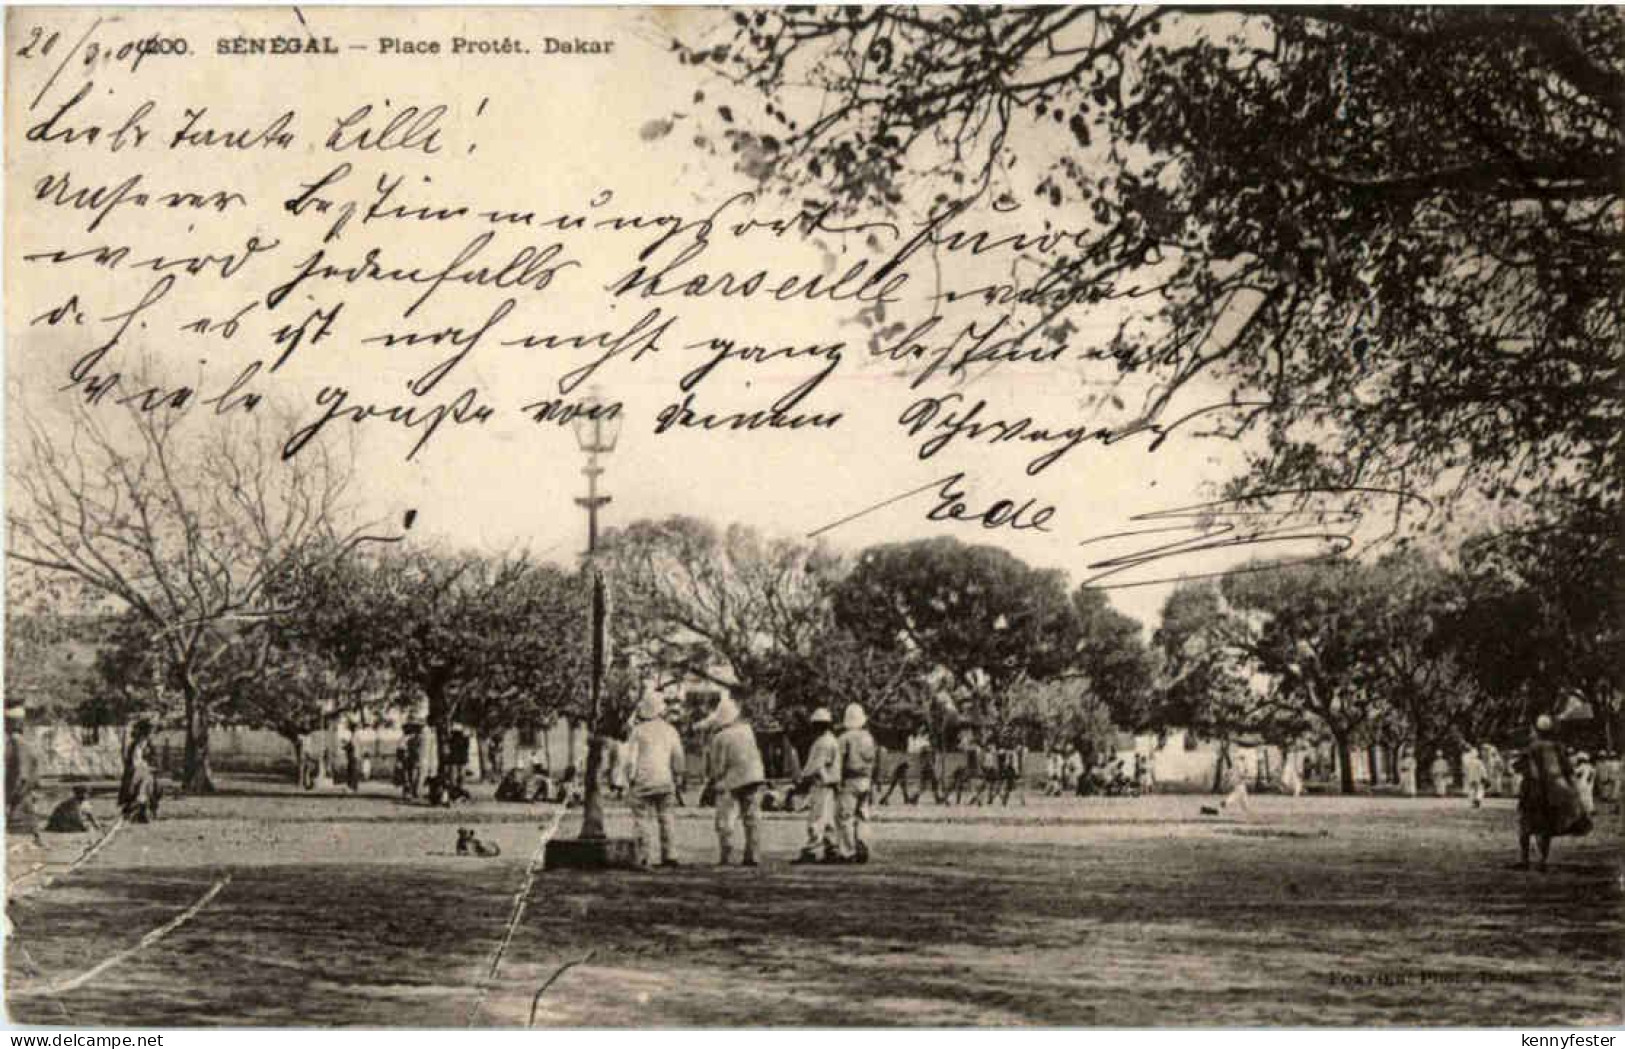 20/3.04
200. SÉNÉGAL — Place Protêt. Dakar
Liebe Tante Lilli!
Unserer Bestimmungsort
wird jedenfalls Marseille
d. h. es ist noch nicht ganz bestimmt
viele Grüße von deinem Schwager
Ede
delcampe.net
kennyfester